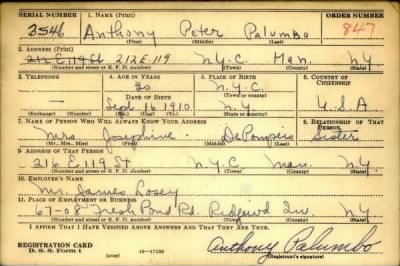 SERIAL NUMBER 1. NAME (Print) ORDER NUMBER
3546 Anthony Peter Palumbo 847
(First) (Middle) (Last)
2. ADDRESS (Print)
212 E 119 St 212 E. 119 N.Y.C. Man. N.Y.
(Number and street or R. F. D. number) (Town) (County) (State)
3. TELEPHONE 4. AGE IN YEARS 5. PLACE OF BIRTH 6. COUNTRY OF CITIZENSHIP
— 30 N.Y.C.
DATE OF BIRTH (Town or county)
Sept. 16 1910 N.Y. U.S.A
(Exchange) (Number) (Mo.) (Day) (Yr.) (State or country)
7. NAME OF PERSON WHO WILL ALWAYS KNOW YOUR ADDRESS 8. RELATIONSHIP OF THAT PERSON
Mrs. Josephine De Pompeis Sister
(Mr., Mrs., Miss) (First) (Middle) (Last)
9. ADDRESS OF THAT PERSON
216 E. 119 St N.Y.C. Man. N.Y.
(Number and street or R. F. D. number) (Town) (County) (State)
10. EMPLOYER'S NAME
Mr. James Losey
11. PLACE OF EMPLOYMENT OR BUSINESS
67-08 Fresh Pond Rd. Ridgewd N.Y.
(Number and street or R. F. D. number) (Town) (County) (State)
I AFFIRM THAT I HAVE VERIFIED ABOVE ANSWERS AND THAT THEY ARE TRUE.
REGISTRATION CARD
D. S. S. Form 1 (over) Anthony Palumbo
(Registrant's signature)